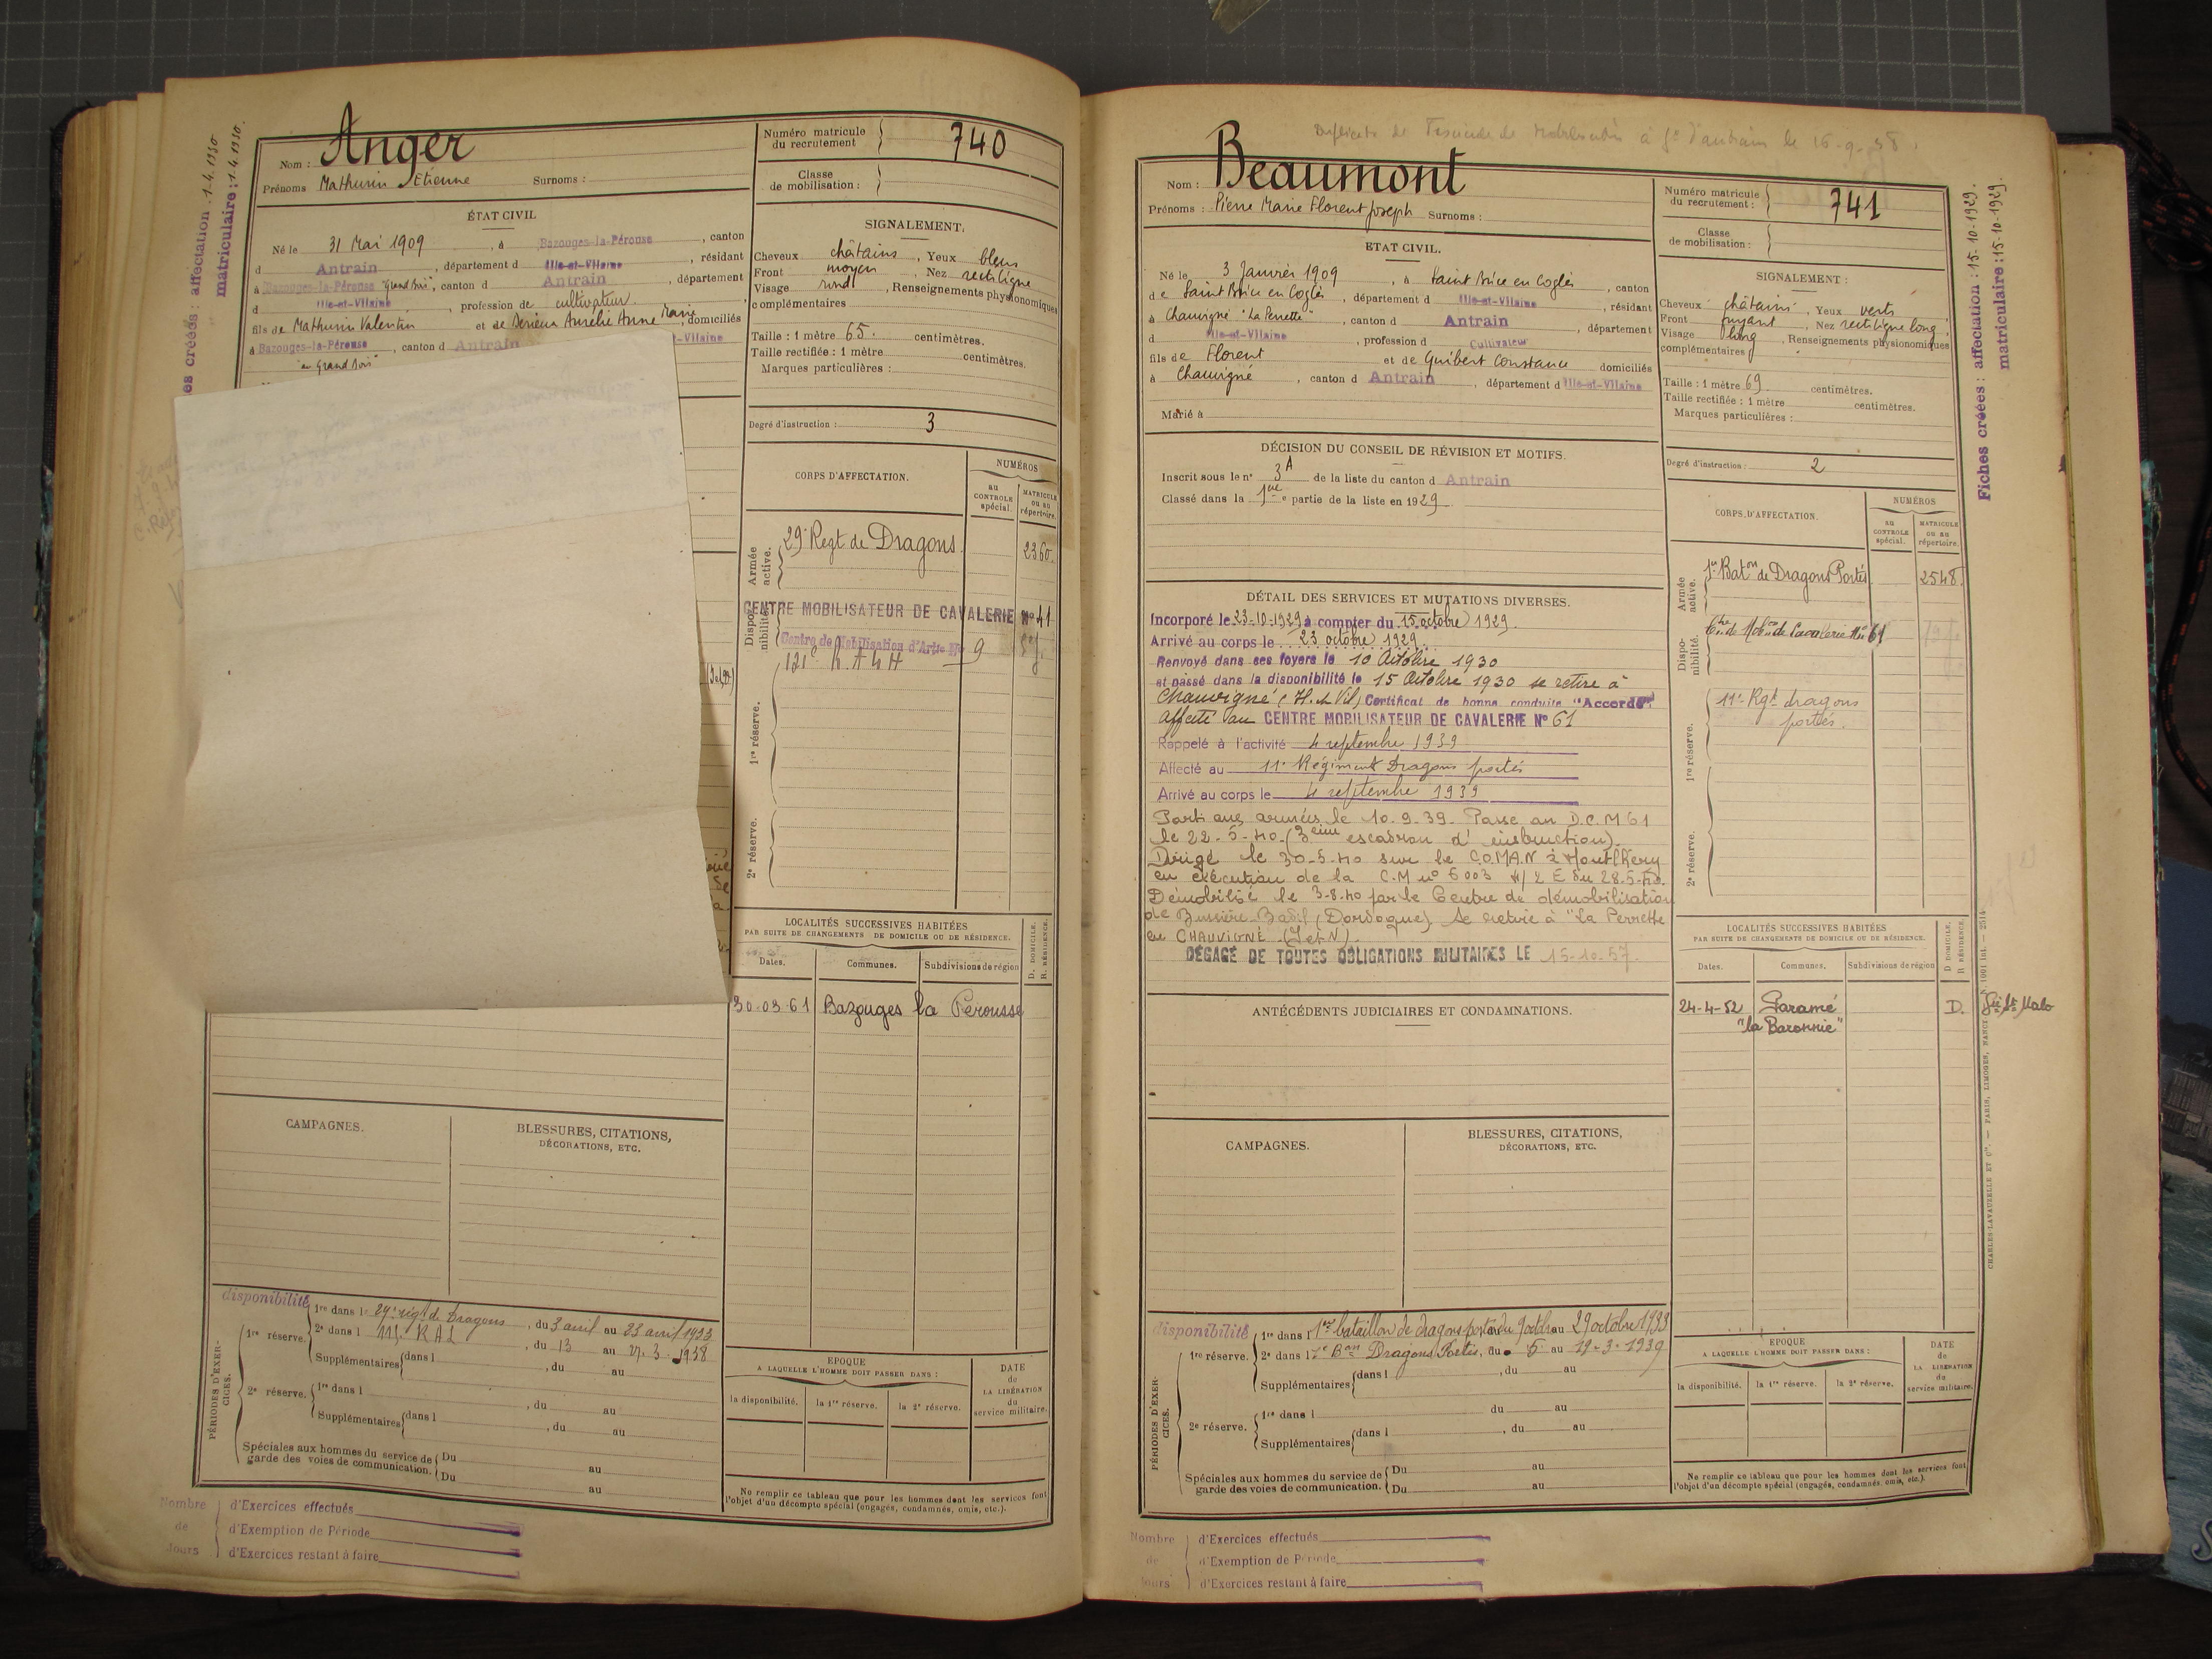 Anger
Nom :
Prénoms Mathurin Etienne Surnoms :
Numéro matricule du recrutement 740
Classe de mobilisation :
ÉTAT CIVIL
Né le 31 Mai 1909, à Bazouges-la-Pérouse, canton
d Antrain, département d Ille-et-Vilaine, résidant
à Bazouges-la-Pérouse "Grand Bois", canton d Antrain, département
d Ille-et-Vilaine, profession de cultivateur
fils de Mathurin Valentin et de Aurélie Anne Marie, domiciliés
à Bazouges-la-Pérouse, canton d Antrain -Vilaine
SIGNALEMENT.
Cheveux châtains, Yeux bleus
Front moyen, Nez rectiligne
Visage rond, Renseignements physionomiques
complémentaires
Taille : 1 mètre 65. centimètres.
Taille rectifiée : 1 mètre centimètres.
Marques particulières :
Degré d'instruction : 3
CORPS D'AFFECTATION.
NUMÉROS
AU CONTROLE spécial.
MATRICULE OU AU répertoire.
Armée active.
29e Regt de Dragons. 2360.
Disponibilité.
CENTRE MOBILISATEUR DE CAVALERIE N° 41
Centre de Mobilisation d'Artie N° 9
1re réserve.
2e réserve.
LOCALITÉS SUCCESSIVES HABITÉES
PAR SUITE DE CHANGEMENTS DE DOMICILE OU DE RÉSIDENCE.
D. DOMICILE. R. RÉSIDENCE.
Dates. Communes. Subdivisions de région
30-03-61 Bazouges la Pérousse
CAMPAGNES.
BLESSURES, CITATIONS,
DÉCORATIONS, ETC.
disponibilité
PÉRIODES D'EXERCICES.
1re réserve.
1re dans l 29e régt de Dragons, du 3 avril au 23 avril 1933
2e dans l, du 13 au 27.3.1938
Supplémentaires dans l, du au
2e réserve.
1re dans l, du au
Supplémentaires dans l, du au
Spéciales aux hommes du service de Du au
garde des voies de communication. Du au
EPOQUE
A LAQUELLE L'HOMME DOIT PASSER DANS :
la disponibilité. la 1re réserve. la 2e réserve.
DATE de LA LIBÉRATION du service militaire.
Ne remplir ce tableau que pour les hommes dont les services font
l'objet d'un décompte spécial (engagés, condamnés, omis, etc.).
Nombre de Jours
d'Exercices effectués
d'Exemption de Période
d'Exercices restant à faire
es créées : affectation : 1-4-1930
matriculaire : 1-4-1930.
Duplicata de Fascicule de à Antrain le 16-9-38
Beaumont
Nom :
Prénoms : Pierre Marie Florent Joseph Surnoms :
Numéro matricule du recrutement : 741
Classe de mobilisation :
ETAT CIVIL.
Né le 3 Janvier 1909, à Saint Brice en Coglès, canton
de Saint Brice en Coglès, département d Ille-et-Vilaine, résidant
à Chauvigné "La Perrette", canton d Antrain, département
d Ille-et-Vilaine, profession d Cultivateur
fils de Florent et de Guibert Constance domiciliés
à Chauvigné, canton d Antrain, département d Ille-et-Vilaine
Marié à
SIGNALEMENT :
Cheveux châtains, Yeux verts
Front fuyant, Nez rectiligne long
Visage long, Renseignements physionomiques
complémentaires
Taille : 1 mètre 69 centimètres.
Taille rectifiée : 1 mètre centimètres.
Marques particulières :
Degré d'instruction : 2
DÉCISION DU CONSEIL DE RÉVISION ET MOTIFS.
Inscrit sous le n° 3A de la liste du canton d Antrain
Classé dans la 1re partie de la liste en 1929
DÉTAIL DES SERVICES ET MUTATIONS DIVERSES.
Incorporé le 23-10-1929 à compter du 15 octobre 1929.
Arrivé au corps le 23 octobre 1929
Renvoyé dans ses foyers le 10 Octobre 1930
et passé dans la disponibilité le 15 Octobre 1930 se retire à
Chauvigné (I. et Vil) Certificat de bonne conduite "Accordé"
affecté au CENTRE MOBILISATEUR DE CAVALERIE N° 61
Rappelé à l'activité 4 septembre 1939
Affecté au 11e Régiment Dragons portés
Arrivé au corps le 4 septembre 1939
Parti aux armées le 10.9.39. Passe au D.C.M 61
le 22-5-40 (3eme escadron d'instruction).
Dirigé le 30-5-40 sur le C.O.M.A.N à Montlhéry
en exécution de la C.M n° 6003 /2 E du 28.5.40.
Démobilisé le 3-8-40 par le Centre de démobilisation
de Bussière-Badil (Dordogne) Se retire à "La Perrette
en CHAUVIGNÉ (I et V).
DÉGAGÉ DE TOUTES OBLIGATIONS MILITAIRES LE 15-10-57.
CORPS D'AFFECTATION.
NUMÉROS
AU CONTROLE spécial.
MATRICULE OU AU répertoire.
Armée active.
1er Baton de Dragons Portés 2548.
Disponibilité.
Ctre de Mobon de Cavalerie N° 61
1re réserve.
11e Rgt dragons
portés.
2e réserve.
LOCALITÉS SUCCESSIVES HABITÉES
PAR SUITE DE CHANGEMENTS DE DOMICILE OU DE RÉSIDENCE.
D DOMICILE. R RÉSIDENCE.
Dates. Communes. Subdivisions de région
24-4-52 Paramé D. St Malo
"la Baronnie"
ANTÉCÉDENTS JUDICIAIRES ET CONDAMNATIONS.
CAMPAGNES.
BLESSURES, CITATIONS,
DÉCORATIONS, ETC.
disponibilité
PÉRIODES D'EXERCICES.
1re réserve.
1re dans l 1er bataillon de dragons portés du 9 octobre au 29 octobre 1933
2e dans l Bon Dragons Portés, du 5 au 19-3-1939
Supplémentaires dans l, du au
2e réserve.
1re dans l du au
Supplémentaires dans l, du au
Spéciales aux hommes du service de Du au
garde des voies de communication. Du au
EPOQUE
A LAQUELLE L'HOMME DOIT PASSER DANS :
la disponibilité. la 1re réserve. la 2e réserve.
DATE de LA LIBÉRATION du service militaire.
Ne remplir ce tableau que pour les hommes dont les services font
l'objet d'un décompte spécial (engagés, condamnés, omis, etc.).
Nombre de Jours
d'Exercices effectués
d'Exemption de Période
d'Exercices restant à faire
Fiches créées : affectation : 15-10-1929.
matriculaire : 15-10-1929.
CHARLES-LAVAUZELLE ET Cie — PARIS, LIMOGES, NANCI